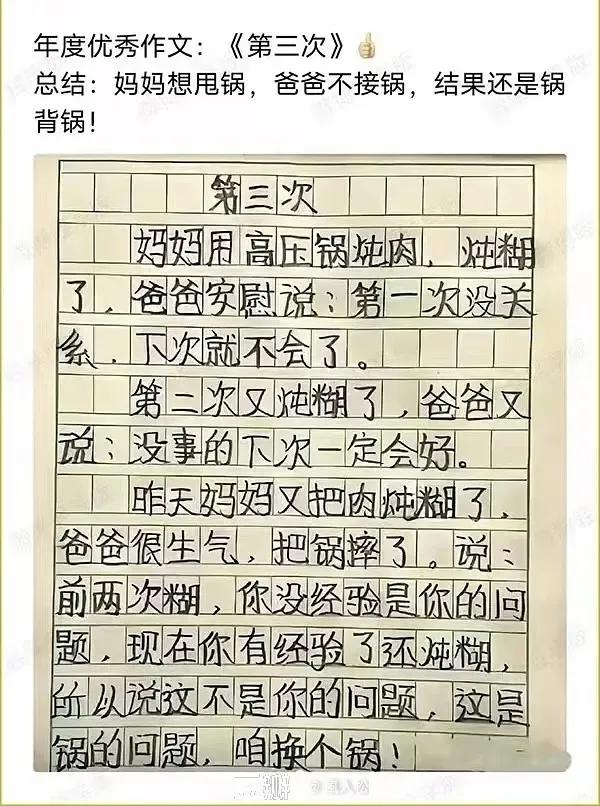 年度优秀作文：《第三次》👍
总结：妈妈想甩锅，爸爸不接锅，结果还是锅
背锅！
第三次
妈妈用高压锅炖肉，炖糊
了，爸爸安慰说：第一次没关
系，下次就不会了。
第二次又炖糊了，爸爸又
说：没事的下次一定会好。
昨天妈妈又把肉炖糊了，
爸爸很生气，把锅摔了。说：
前两次糊，你没经验是你的问
题，现在你有经验了还炖糊，
所以说这不是你的问题，这是
锅的问题，咱换个锅！